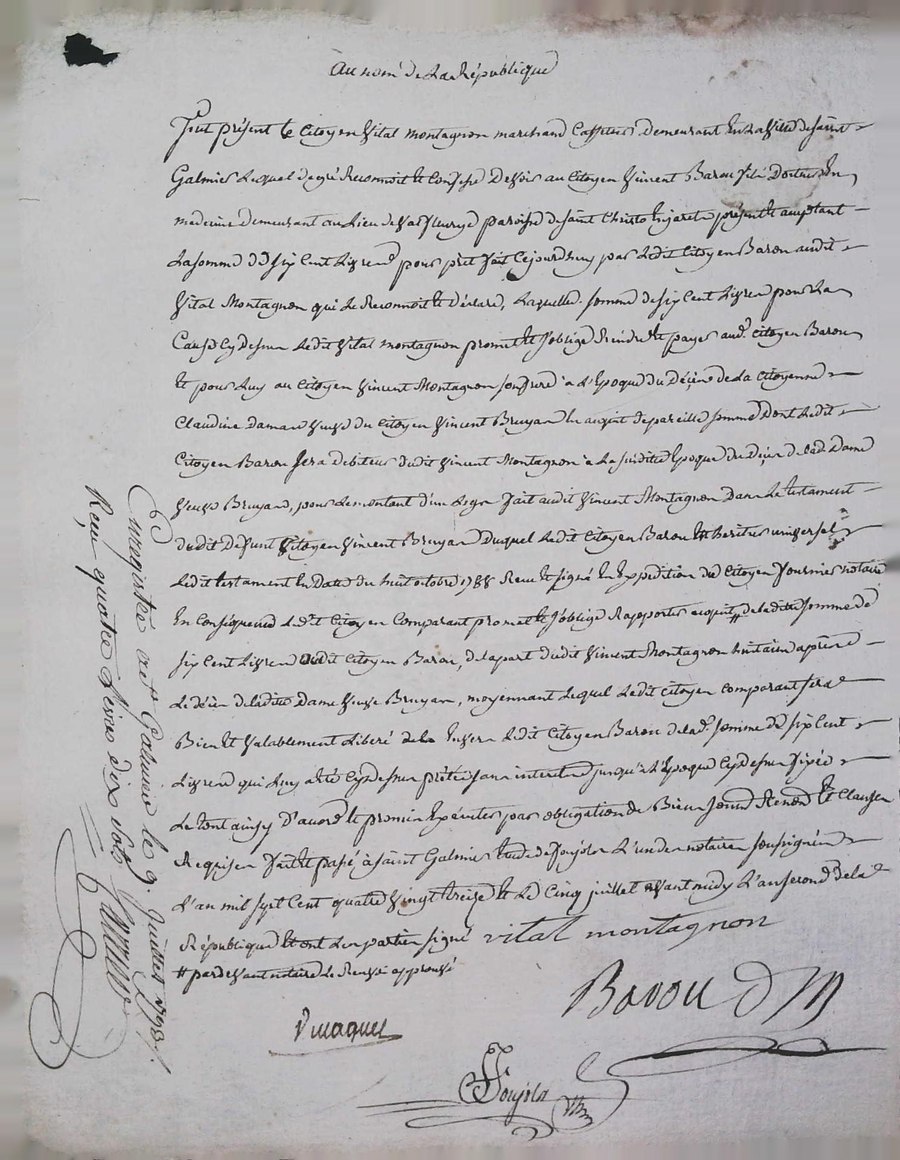 Au nom de La République
Fut présent le Citoyen Vital montagnon marchand Demeurant En La Ville de saint
Galmier Lequel de gré Reconnoit et Confesse Devoir au Citoyen Vincent Barou Docteur En
medecine demeurant au Lieu de paroisse de saint Christo En jaret présent et acceptant
La somme de six Cent Livres pour prêt fait Cejourdhuy par Ledit Citoyen Barou audit
Vital Montagnon qui Le Reconnoit et déclare, Laquelle somme de six Cent Livres pour La
Cause Cy dessus Ledit Vital montagnon promet et s'oblige Rendre et payer aud. Citoyen Barou
et pour Luy au Citoyen Vincent Montagnon son frere à L'Epoque du Décès de La Citoyenne
Claudine damas Veuve du Citoyen Vincent Bruyas En argent de pareille somme Dont Ledit
Citoyen Barou sera debiteur dudit Vincent Montagnon à La susditte Epoque du Décès de Lad. Dame
Veuve Bruyas, pour Le montant d'un Legs fait audit Vincent Montagnon Dans Le testament
dudit Deffunt Citoyen Vincent Bruyas Duquel Ledit Citoyen Barou Est heritier universel
Ledit testament En Date du huit octobre 1788 Recu et signé En Expedition du Citoyen fournier notaire
En Conséquence Ledit Citoyen Comparant promet et s'oblige Rapporter acquit # de Ladite somme de
six Cent Livres audit Citoyen Barou, de La part dudit Vincent Montagnon huitaine après
Le décès de Ladite Dame Veuve Bruyas, moyennant Lequel Ledit Citoyen comparant sera
Bien et Valablement Libéré Envers Ledit Citoyen Barou de Lad. somme de six Cent
Livres qui Luy a été Cy dessus prêtée sans interets jusqu'à L'Epoque Cy dessus fixée
Le tout ainsy D'accord et promis Exécuter par obligation de Biens soumis Renond et Clauses
Requises fait et passé à saint Galmier Etude de Poujola L'un des notaires soussignés
L'an mil sept Cent quatre Vingt treize et Le Cinq juillet avant midy L'an second de La
République Et ont Les parties signé vital montagnon
# pardevant notaire Le Renvoi approuvé
Barou D M
Poujola
Enregistré a St Galmier le 9 Juillet 1793
Reçu quatre Livres dix sols